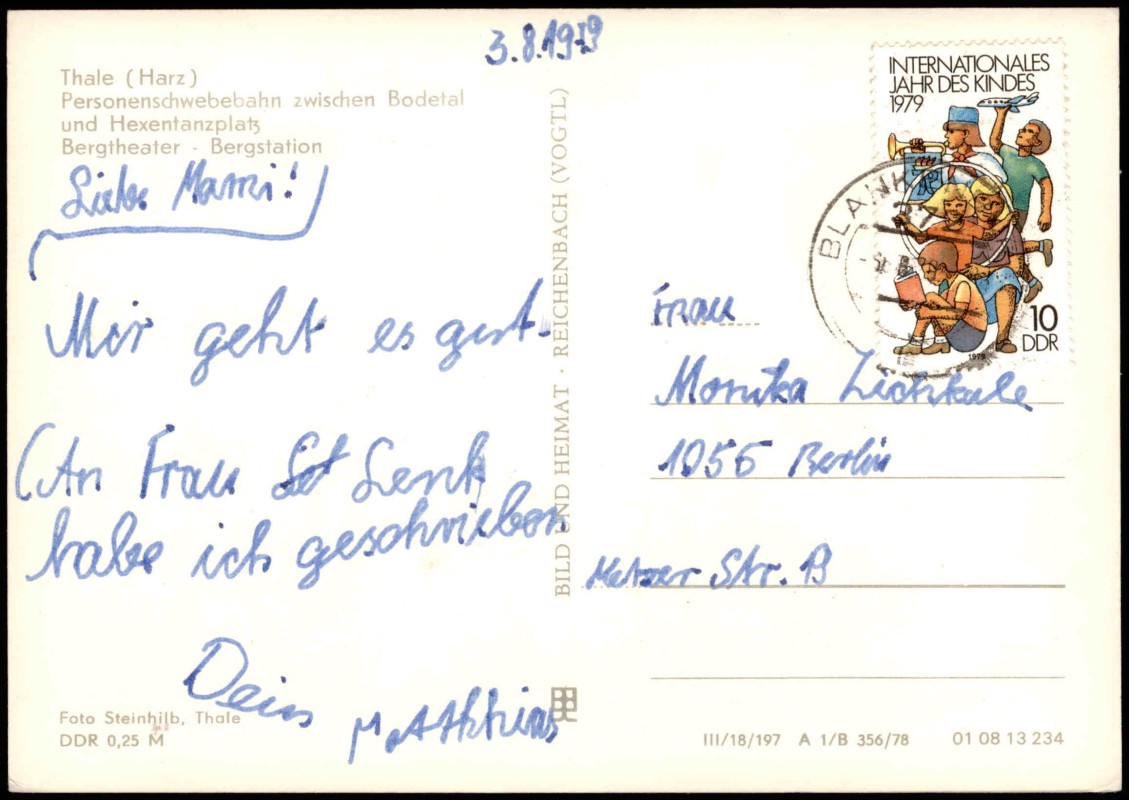 3.8.1979
Thale (Harz)
Personenschwebebahn zwischen Bodetal
und Hexentanzplatz
Bergtheater - Bergstation
Liebe Mami!
Mir geht es gut.
(An Frau Lenk
habe ich geschrieben
Dein
Matthias
Foto Steinhilb, Thale
DDR 0,25 M
BILD UND HEIMAT · REICHENBACH (VOGTL)
INTERNATIONALES
JAHR DES KINDES
1979
10
DDR
1979
BLANK
Frau
Monika
1055 Berlin
Metzer Str. 13
III/18/197 A 1/B 356/78 01 08 13 234